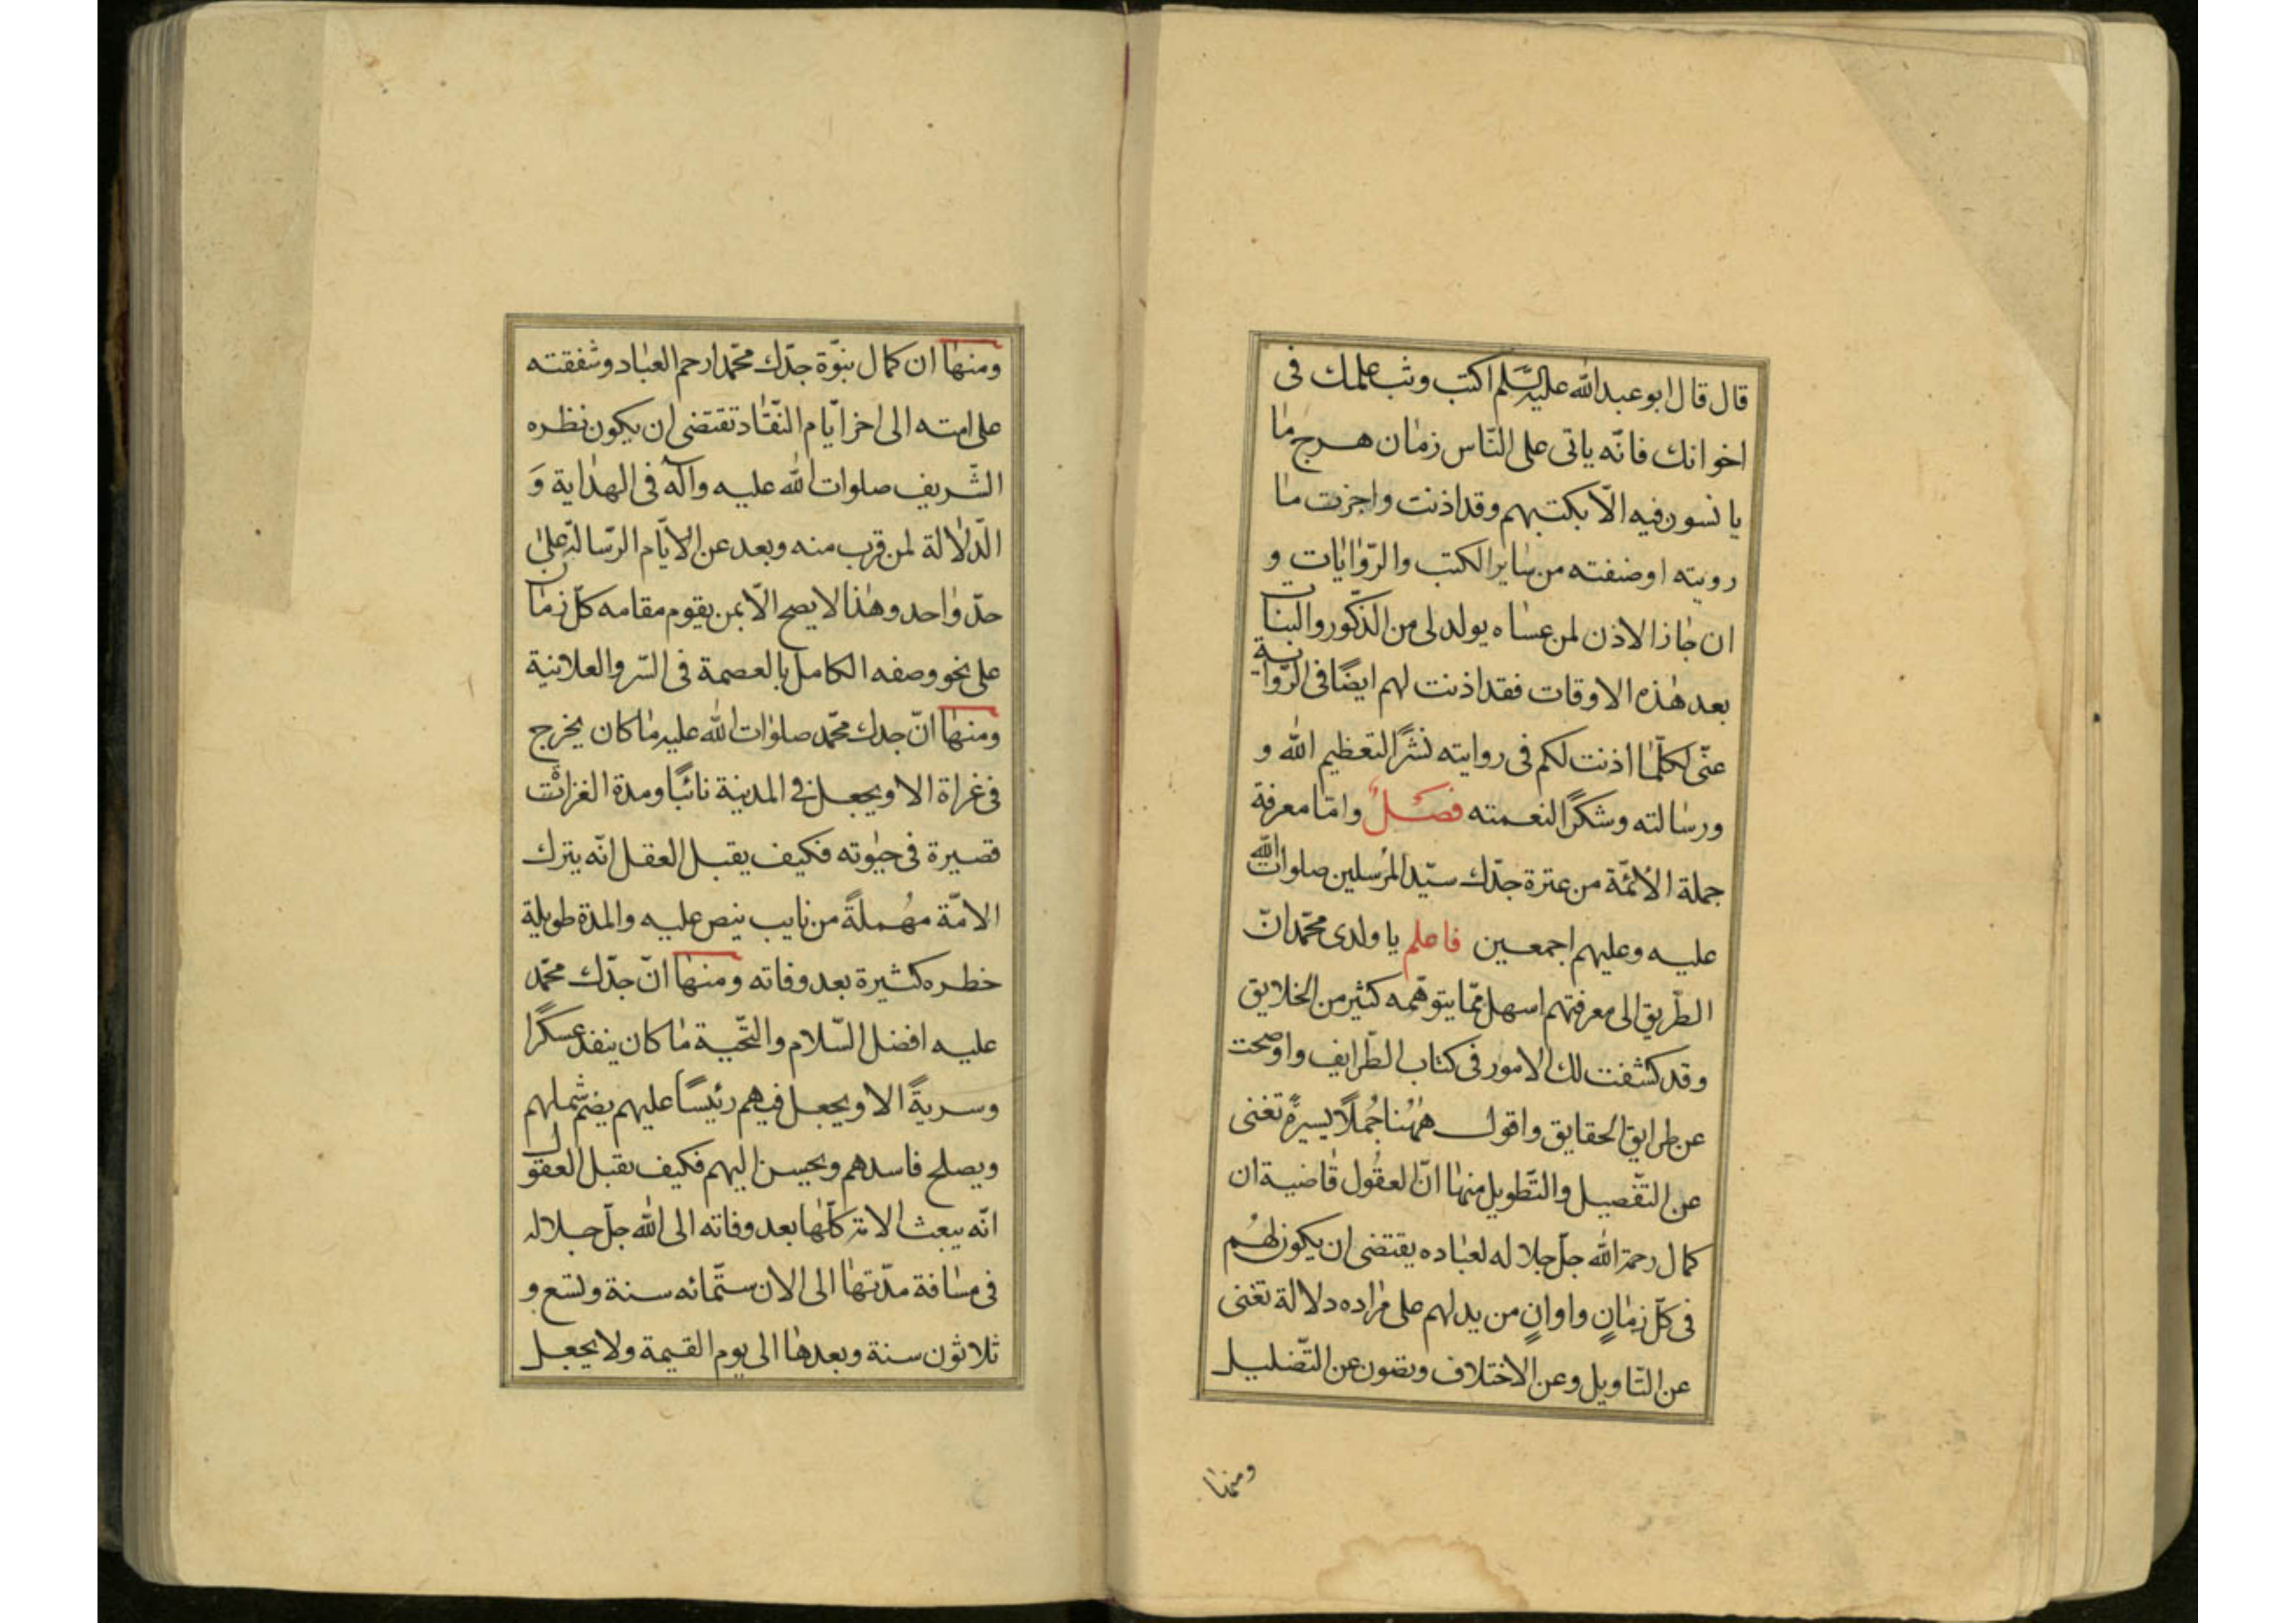 قال قال ابو عبدالله عليه السّلم اكتب وبث علمك فى
اخوانك فانّه ياتى على النّاس زمان هرج ما
يانسون فيه الّا بكتبهم وقد اذنت واجزت ما
رويته او صنفته من ساير الكتب والرّوايات و
ان جاز الاذن لمن عساه يولد لى من الذّكور والبنات
بعد هذه الاوقات فقد اذنت لهم ايضًا فى الرّواية
عنّى لكلّما اذنت لكم فى روايته نشرًا لتعظيم الله و
ورسالته وشكرًا لنعمته فصلٌ وامّا معرفة
جملة الائمّة من عترة جدّك سيّد المرسلين صلوات الله
عليه وعليهم اجمعين فاعلم يا ولدى محمّد انّ
الطّريق الى معرفتهم اسهل ممّا يتوهّمه كثير من الخلايق
وقد كشفت لك الامور فى كتاب الطّرايف واوضحت
عن طرايق الحقايق واقول ههُنا جُملًا يسيرةً تغنى
عن التّفصيل والتّطويل منها انّ العقُول قاضية ان
كمال رحمة الله جلّ جلاله لعباده يقتضى ان يكون لهُم
فى كلّ زمانٍ واوانٍ من يدلهم على مراده دلالة تغنى
عن التّاويل وعن الاختلاف وتصون عن التّضليل
ومنها
ومنها ان كمال نبوّة جدّك محمّد ارحم العباد وشفقته
على امته الى اخر ايّام النّفاد تقتضى ان يكون نظره
الشّريف صلوات الله عليه وآله فى الهداية وَ
الدّلالة لمن قرب منه وبعد عن الايّام الرّسالة على
حدّ واحد وهذا لا يصح الّا بمن يقوم مقامه كلّ زمان
على نحو وصفه الكامل بالعصمة فى السّر والعلانية
ومنها انّ جدك محمّد صلوات الله عليه ما كان يخرج
فى غراة الا ويجعل فى المدينة نائبًا ومدة الغزات
قصيرة فى حيوته فكيف يقبل العقل انّه يترك
الامّة مهُملةً من نايب ينص عليه والمدة طويلة
خطره كثيرة بعد وفاته ومنها انّ جدّك محمّد
عليه افضل السّلام والتّحية ما كان ينفذ عسكرًا
وسريةً الا ويجعل فيهم رئيسًا عليهم يضمّ شملهم
ويصلح فاسدهم ويحسن اليهم فكيف يقبل العقول
انّه يبعث الامة كلّها بعد وفاته الى الله جلّ جلاله
فى مسافة مدّتها الى الان ستّمائه سنة وتسع و
ثلاثون سنة وبعدها الى يوم القيمة ولا يجعل